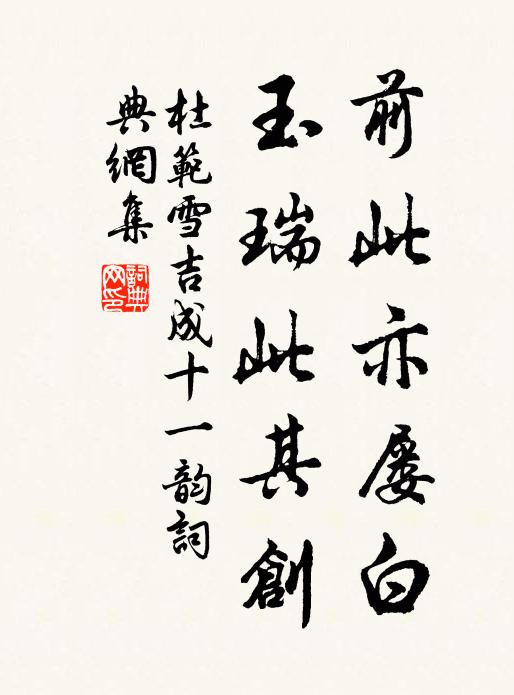 前此亦屡白
玉瑞此其創
杜範雪吉成十一韵詞
典網集
詞典
网印